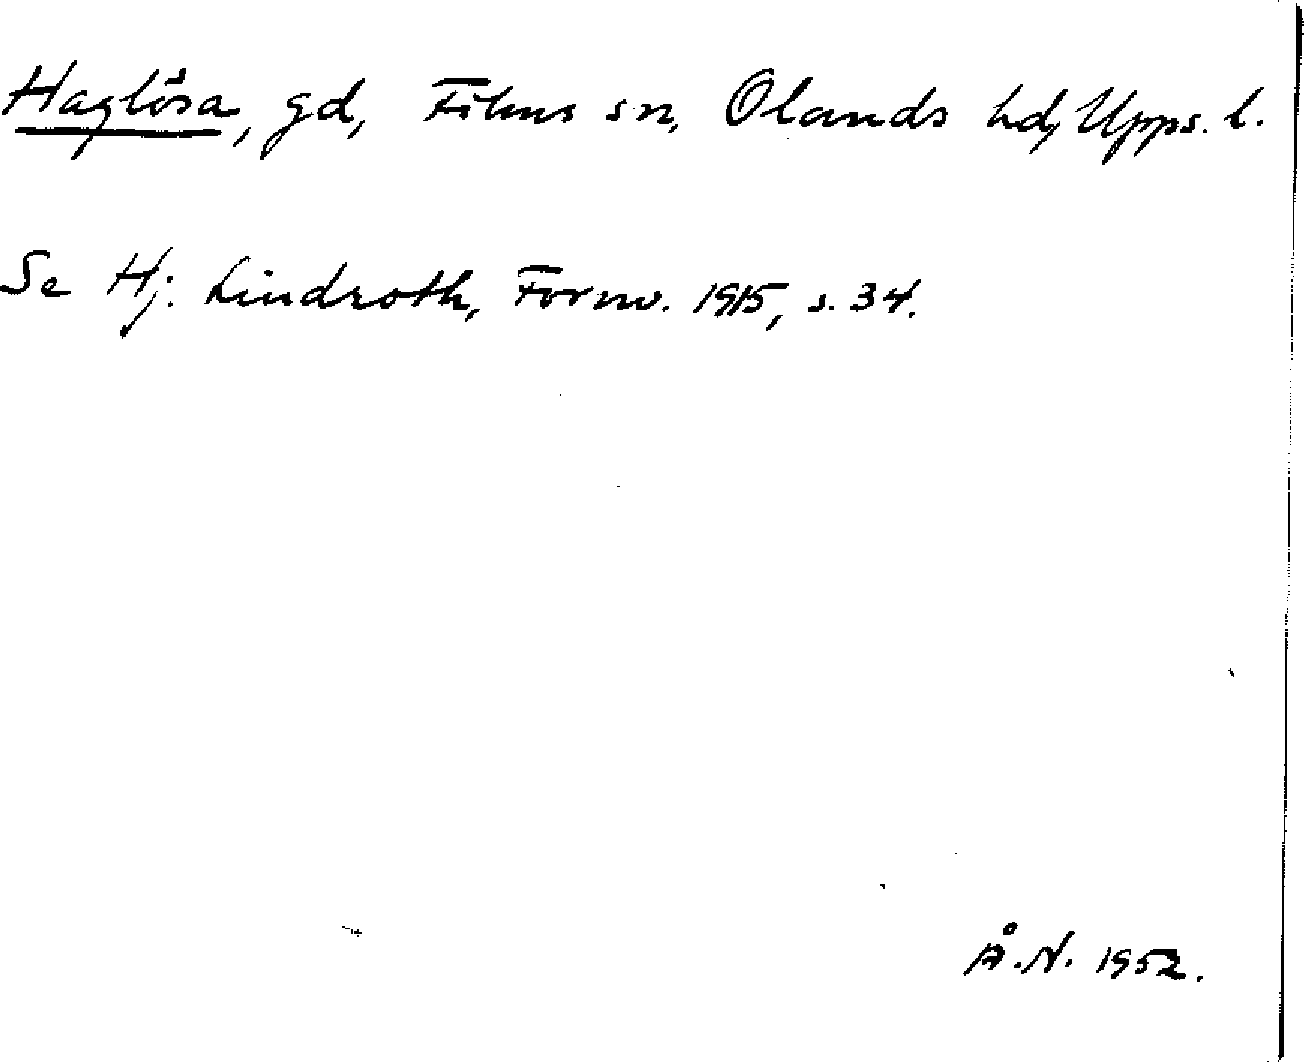 Haglösa, gd, Films sn, Olands hd, Upps. l.
Se Hj. Lindroth, Fornv. 1915, s. 34.
Å. N. 1952.